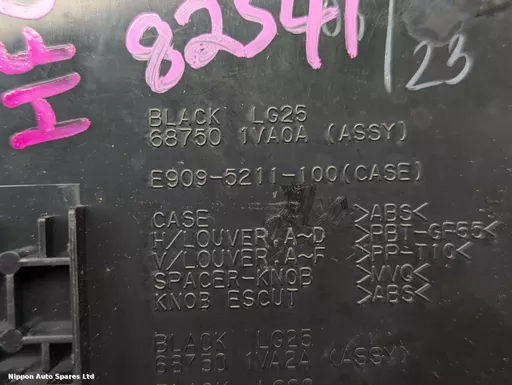 82541
23
BLACK LG25
68750 1VA0A (ASSY)
E909-5211-100(CASE)
CASE >ABS<
H/LOUVER A~D >PBT-GF55<
V/LOUVER A~F
SPACER-KNOB
KNOB ESCUT >ABS<
BLACK LG25
68750 1VA2A (ASSY)
BLACK
Nippon Auto Spares Ltd